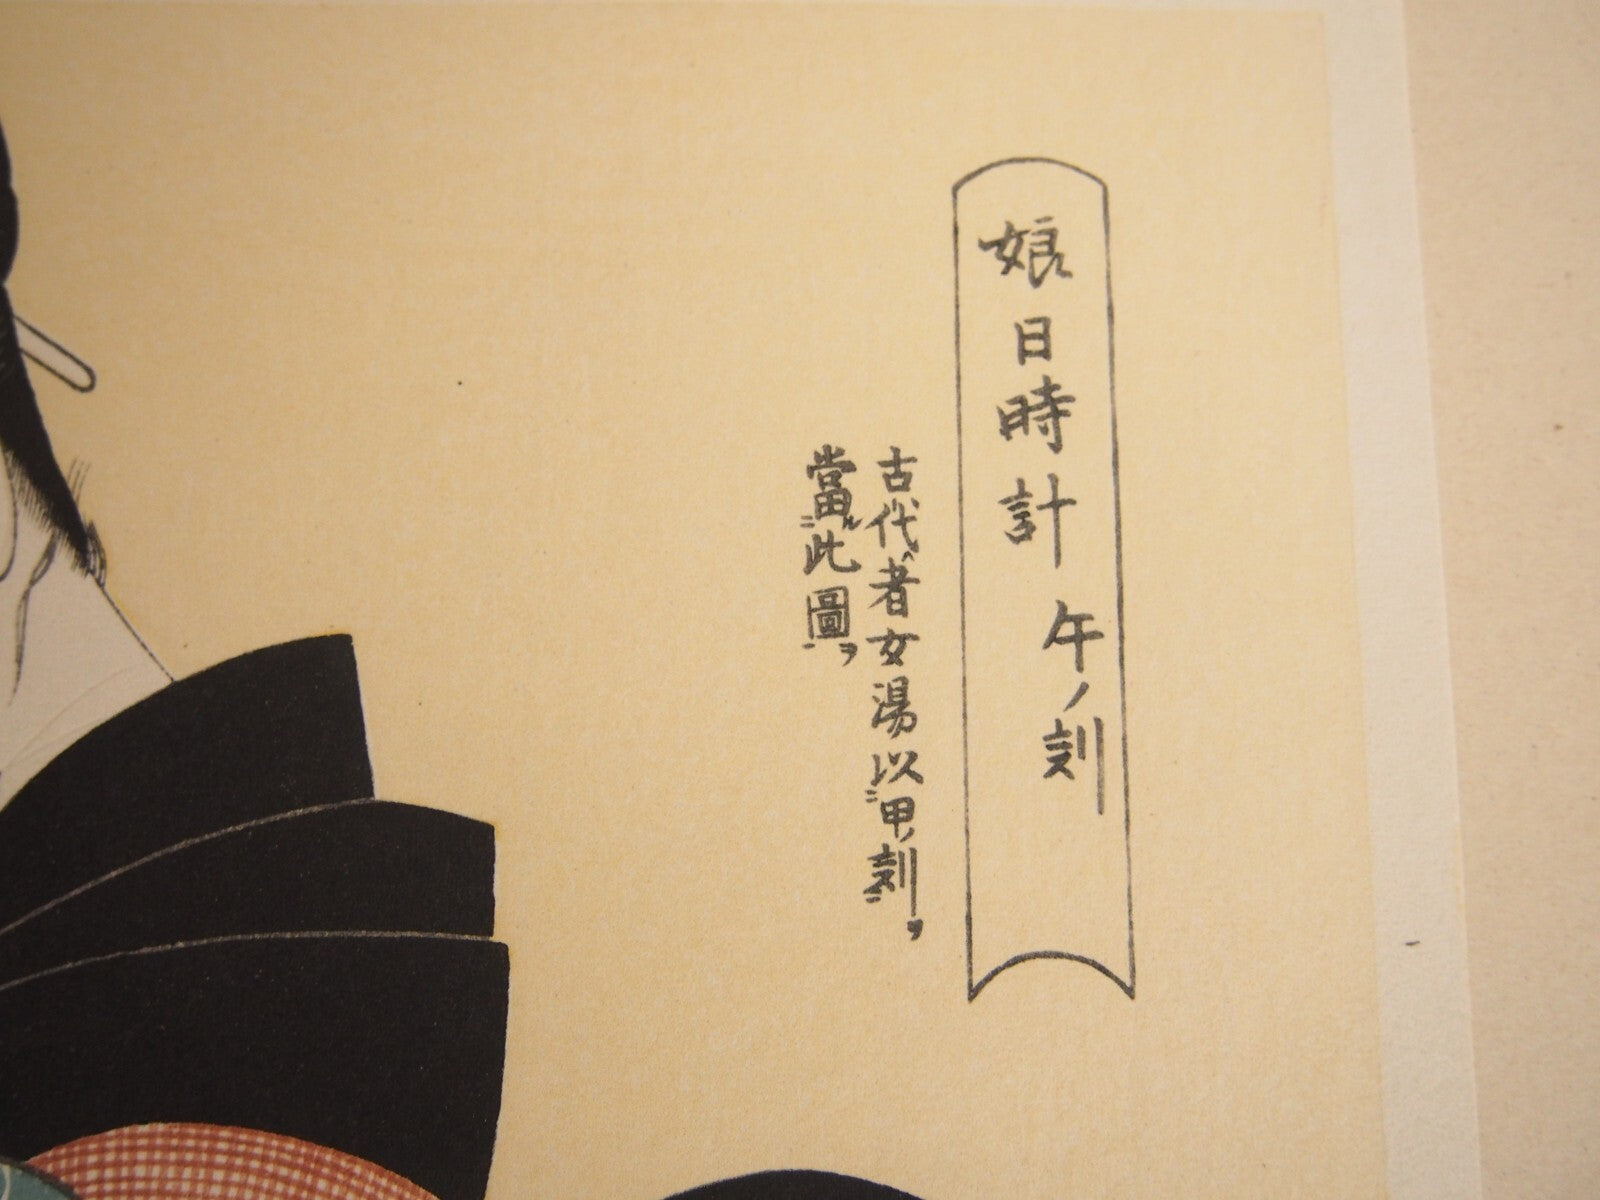 娘日時計 午ノ刻
古代者女湯以甲ノ刻ヲ
當ル此圖ヲ